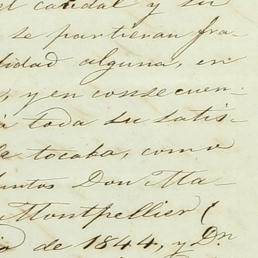 el caudal y su
se partieran fra
lidad alguna, en
, y en consecuen
a toda su satis-
la tocaba, como
untos Don Ma-
Montpellier (
io de 1844, y Dn.